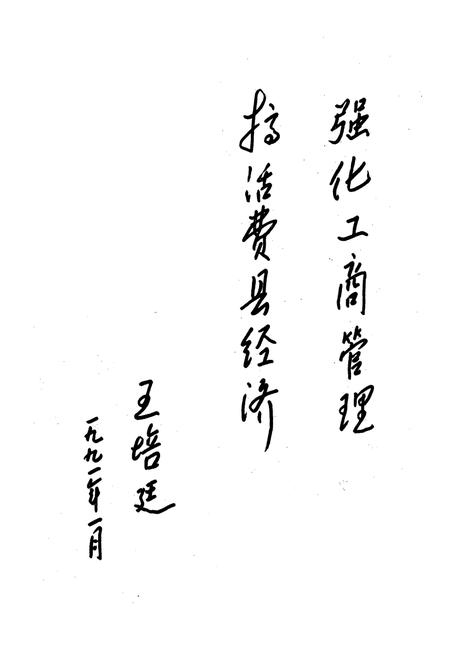 强化工商管理
搞活费县经济
王培廷
一九九一年一月